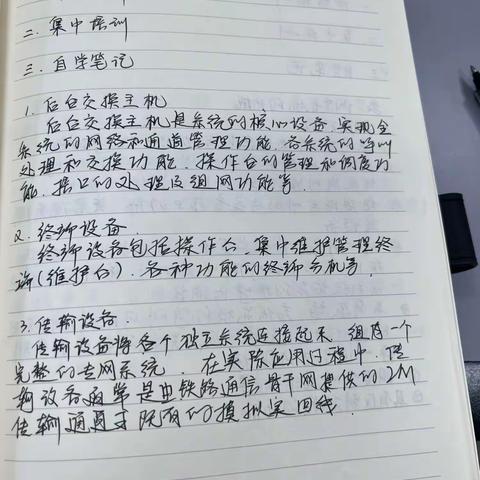 二. 集中培训
三. 自学笔记
1. 后台交换主机
后台交换主机是系统的核心设备,实现全
系统的网络和通道管理功能、各系统的呼叫
处理和交换功能、操作台的管理和调度功
能、接口的处理及组网功能等
2. 终端设备.
终端设备包括操作台、集中维护管理终
端(维护台)、各种功能的终端分机等.
3. 传输设备.
传输设备将各个独立系统连接起来,组成一个
完整的专网系统. 在实际应用过程中,传
输设备通常是由铁路通信骨干网提供的2M
传输通道或既有的模拟实回线.